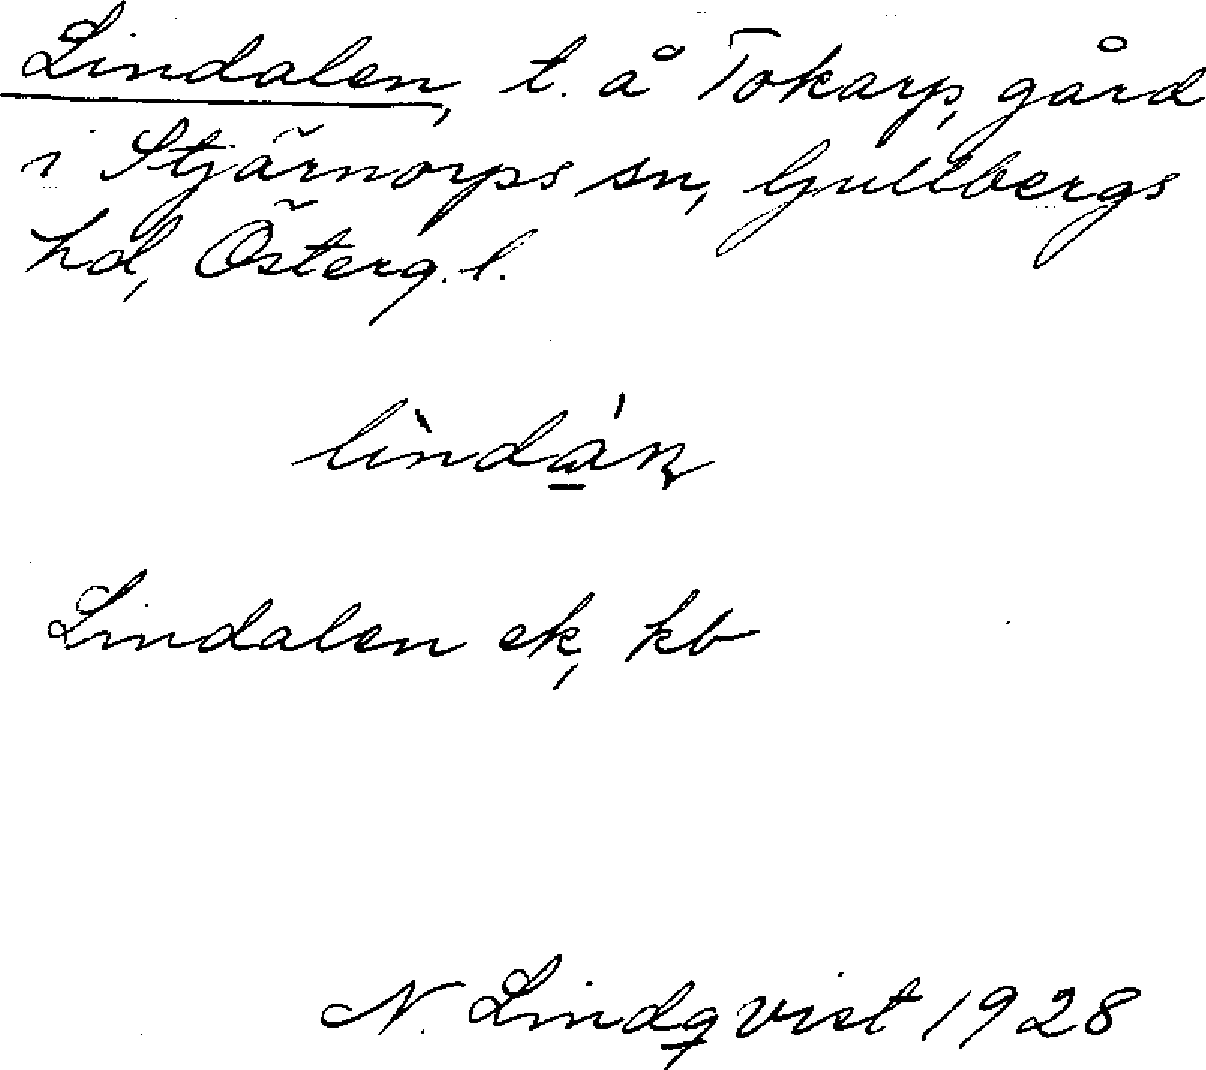 Lindalen, t. å Tokarp, gård
i Stjärnorps sn, Gullbergs
hd, Österg. l.
lìndáṇ
Lindalen ek, kb
N. Lindqvist 1928